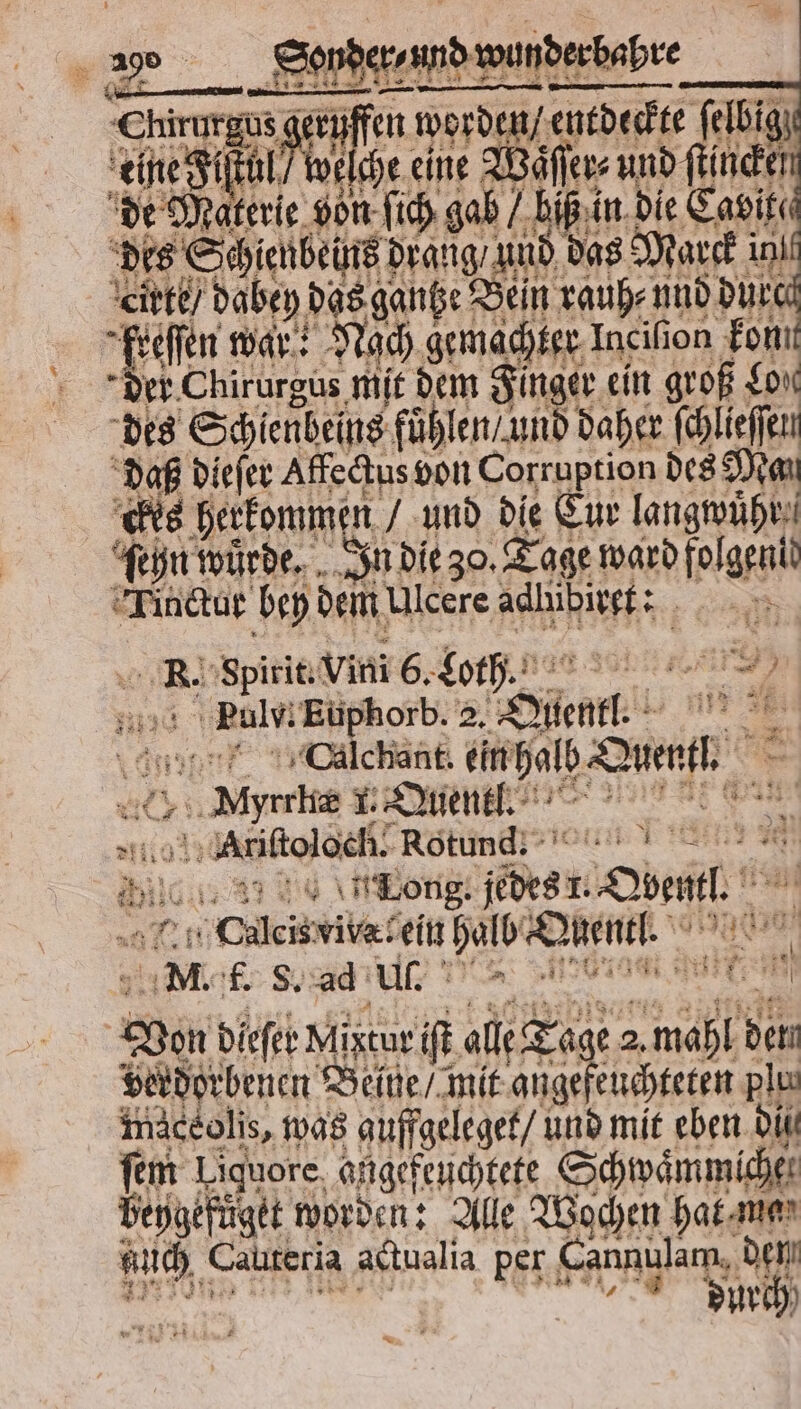 290 Sonder- und wunderbahre
Chirurgus geruffen worden / entdeckte ſelbig
eine Fiſtul / welche eine Waͤſſer- und ſtincken
de Materie von ſich gab / biß in die Cavit
des Schienbeins drang / und das Marck in
cirte / dabey das gantze Bein rauh- nnd durch
freſſen war: Nach gemachter Inciſion kont
der Chirurgus mit dem Finger ein groß Loch
des Schienbeins fuͤhlen / und daher ſchlieſſen
daß dieſer Affectus von Corruption des Mar
ckes herkommen / und die Cur langwuͤhr
ſeyn wuͤrde. In die 30. Tage ward folgend
Tinctur bey dem Ulcere adhibiret:
R. Spirit. Vini 6. Loth.
Pulv. Euphorb. 2. Quentl.
Calchant. ein halb Quentl.
Myrrhæ 1. Quentl.
Ariſtoloch. Rotund.
Long. jedes 1. Qventl.
Calcis vivæ ein halb Quentl.
M. f. S. ad Uſ.
Von dieſer Mixtur iſt alle Tage 2. mahl dem
verdorbenen Beine / mit angefeuchteten plu
maceolis, was auffgeleget / und mit eben die
ſem Liquore angefeuchtete Schwaͤmmiche
beygefuͤget worden: Alle Wochen hat man
auch Cauteria actualia per Cannulam, den
durch